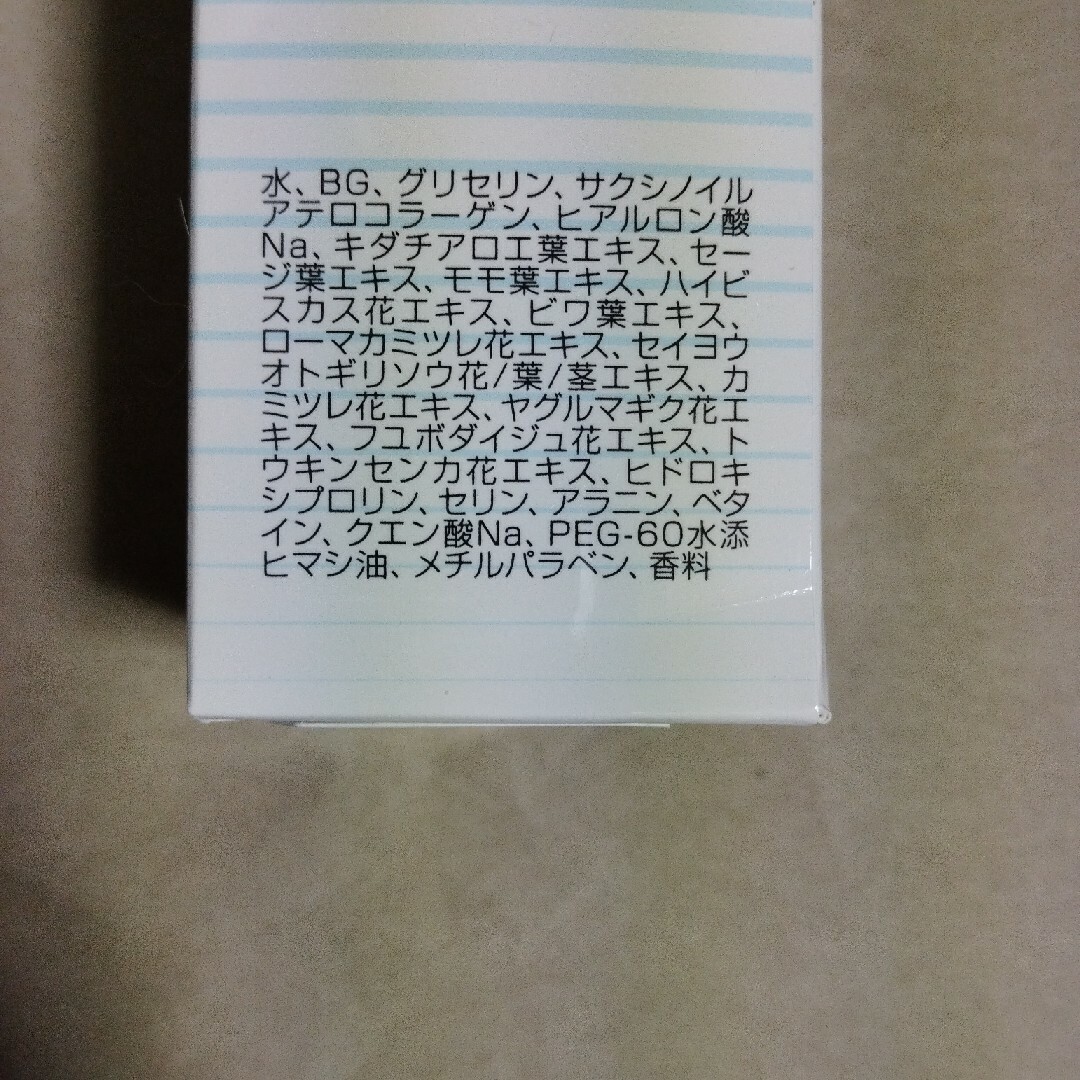 水、BG、グリセリン、サクシノイル
アテロコラーゲン、ヒアルロン酸
Na、キダチアロエ葉エキス、セー
ジ葉エキス、モモ葉エキス、ハイビ
スカス花エキス、ビワ葉エキス、
ローマカミツレ花エキス、セイヨウ
オトギリソウ花/葉/茎エキス、カ
ミツレ花エキス、ヤグルマギク花エ
キス、フユボダイジュ花エキス、ト
ウキンセンカ花エキス、ヒドロキ
シプロリン、セリン、アラニン、ベタ
イン、クエン酸Na、PEG-60水添
ヒマシ油、メチルパラベン、香料